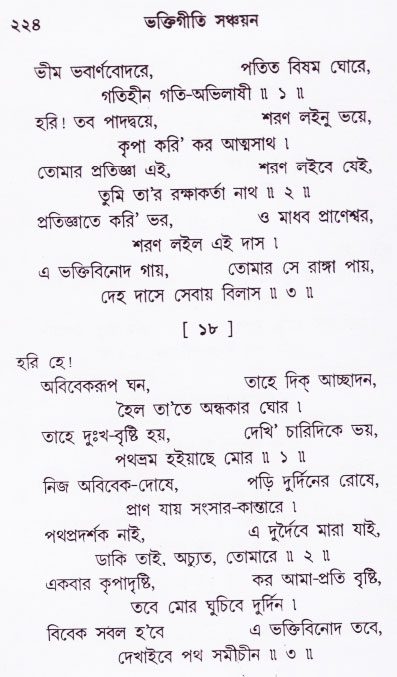 ২২৪ ভক্তিগীতি সঞ্চয়ন
ভীম ভবার্ণবোদরে, পতিত বিষম ঘোরে,
গতিহীন গতি-অভিলাষী ॥ ১ ॥
হরি! তব পাদদ্বয়ে, শরণ লইনু ভয়ে,
কৃপা করি' কর আত্মসাথ ।
তোমার প্রতিজ্ঞা এই, শরণ লইবে যেই,
তুমি তা'র রক্ষাকর্তা নাথ ॥ ২ ॥
প্রতিজ্ঞাতে করি' ভর, ও মাধব প্রাণেশ্বর,
শরণ লইল এই দাস ।
এ ভক্তিবিনোদ গায়, তোমার সে রাঙ্গা পায়,
দেহ দাসে সেবায় বিলাস ॥ ৩ ॥
[ ১৮ ]
হরি হে!
অবিবেকরূপ ঘন, তাহে দিক্ আচ্ছাদন,
হৈল তা'তে অন্ধকার ঘোর ।
তাহে দুঃখ-বৃষ্টি হয়, দেখি' চারিদিকে ভয়,
পথভ্রম হইয়াছে মোর ॥ ১ ॥
নিজ অবিবেক-দোষে, পড়ি দুর্দিনের রোষে,
প্রাণ যায় সংসার-কান্তারে ।
পথপ্রদর্শক নাই, এ দুর্দৈবে মারা যাই,
ডাকি তাই, অচ্যুত, তোমারে ॥ ২ ॥
একবার কৃপাদৃষ্টি, কর আমা-প্রতি বৃষ্টি,
তবে মোর ঘুচিবে দুর্দিন ।
বিবেক সবল হ'বে এ ভক্তিবিনোদ তবে,
দেখাইবে পথ সমীচীন ॥ ৩ ॥